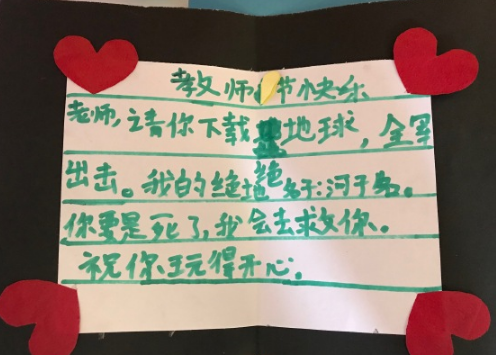 教师节快乐
老师,请你下载地球,全军
出击。我的绝地名字:河于名。
你要是死了,我会去救你。
祝你玩得开心。